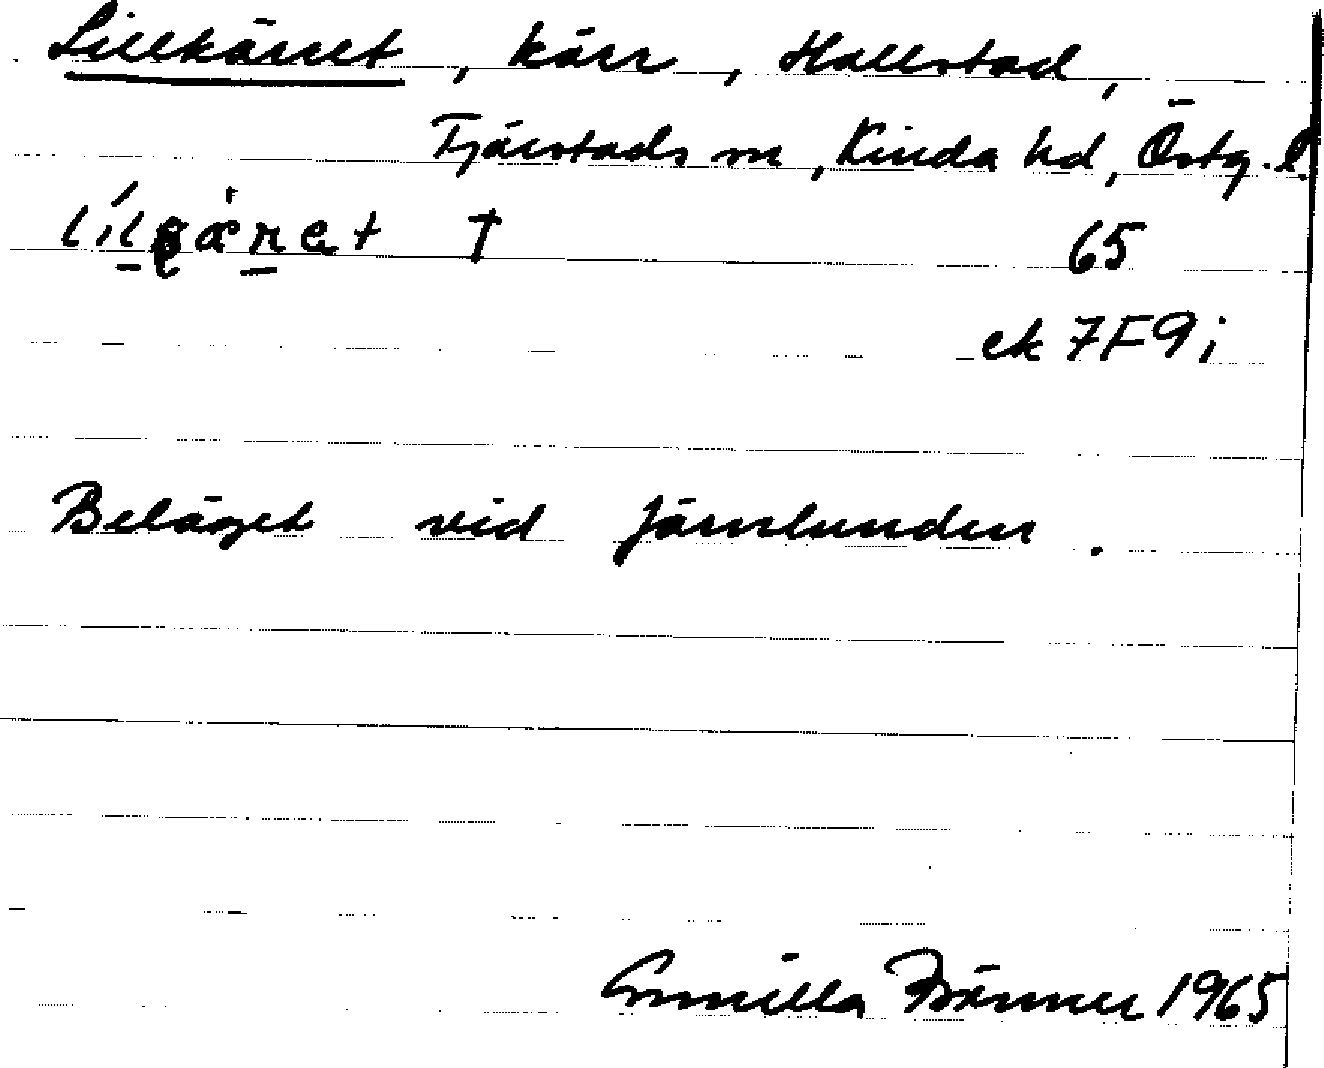 Lillkärret, kärr, Hallstad,
Tjärstads sn, Kinda hd, Östg. l.
†
65
ek 7F9i
Beläget vid Järnlunden.
Gunilla 1965